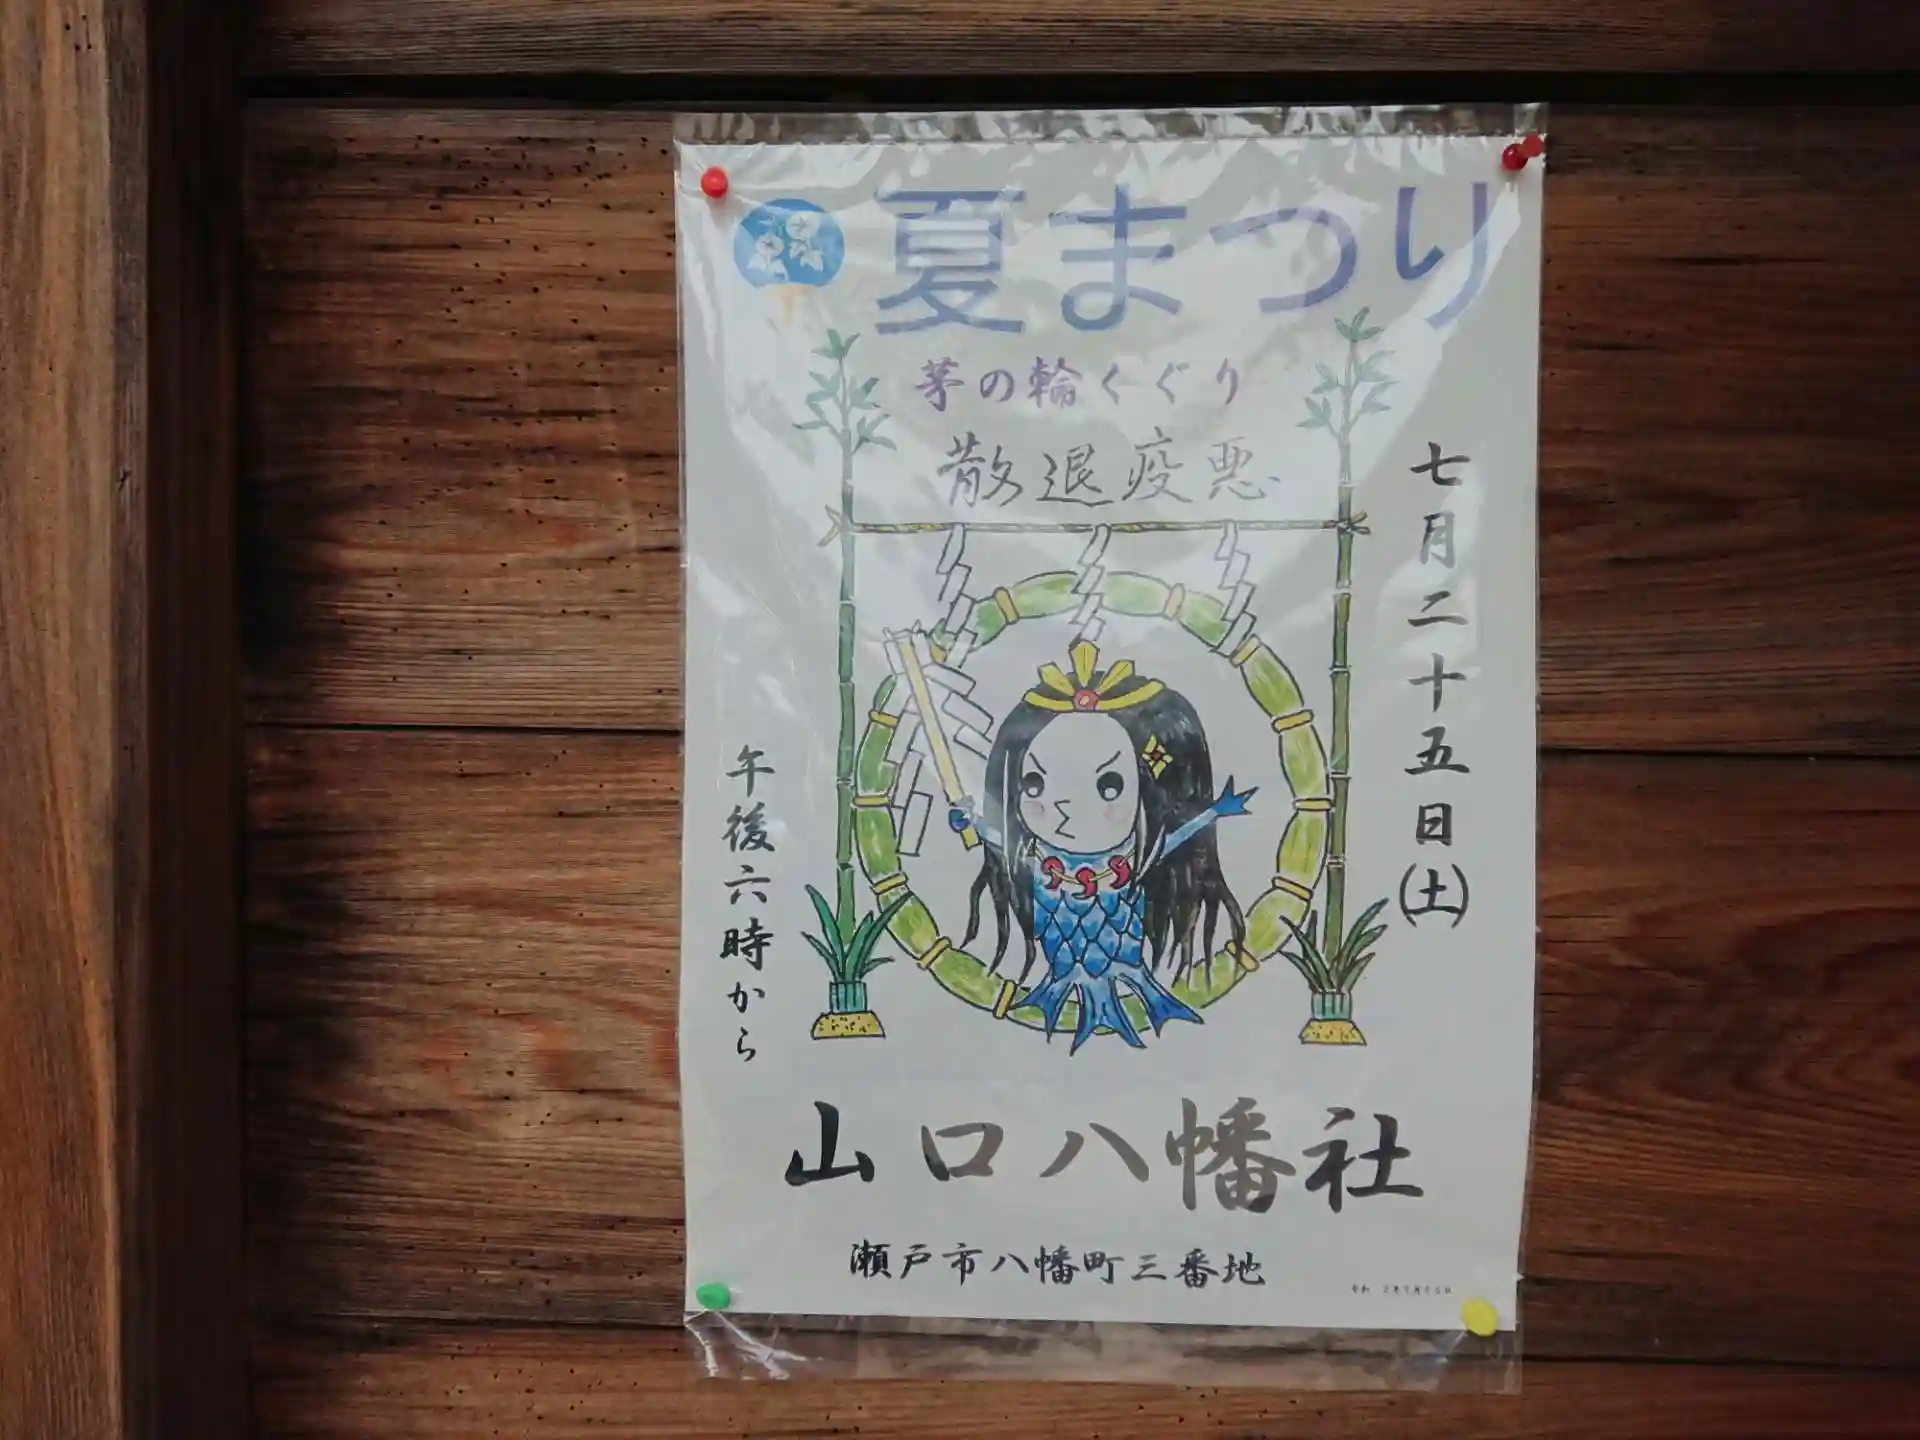 夏まつり
茅の輪くぐり
散退疫悪
七月二十五日(土)
午後六時から
山口八幡社
瀬戸市八幡町三番地
令和 2年7月25日